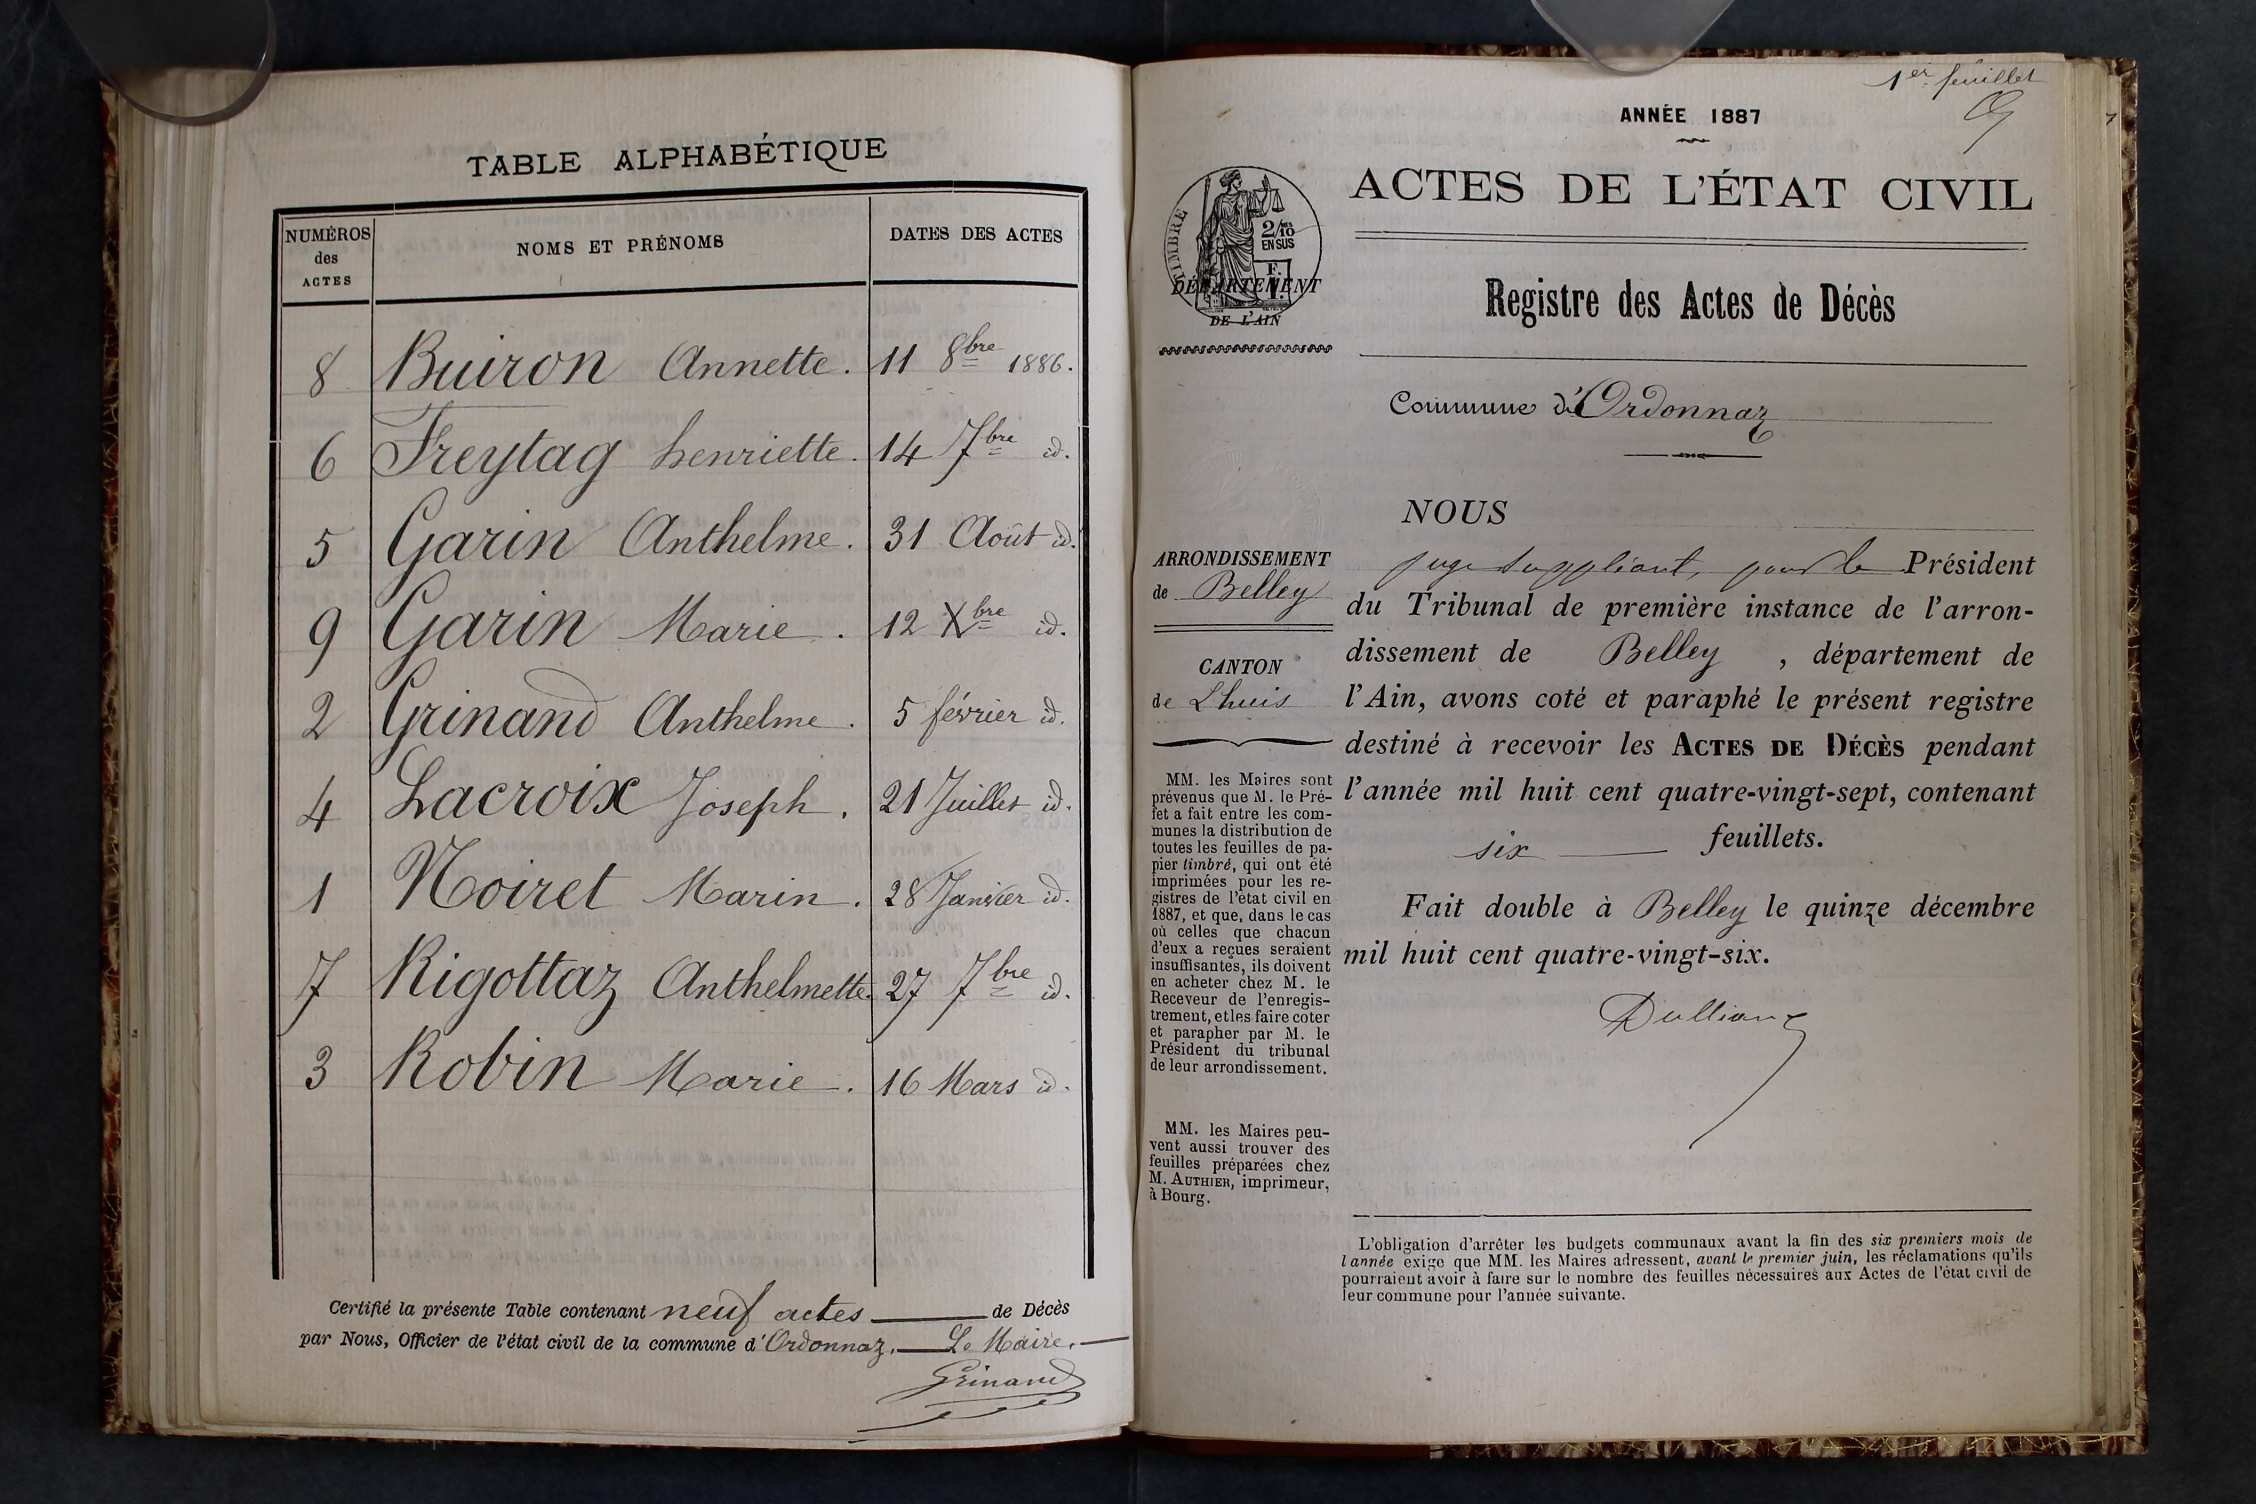 TABLE ALPHABÉTIQUE
NUMÉROS
des
ACTES
NOMS ET PRÉNOMS
DATES DES ACTES
8 Buiron Annette. 11 8bre 1886.
6 Freytag henriette. 14 7bre id.
5 Garin Anthelme. 31 Août id.
9 Garin Marie. 12 Xbre id.
2 Grinand Anthelme. 5 février id.
4 Lacroix Joseph. 21 Juillet id.
1 Noiret Marin. 28 Janvier id.
7 Rigottaz Anthelmette. 27 7bre id.
3 Robin Marie. 16 Mars id.
Certifié la présente Table contenant neuf actes de Décès
par Nous, Officier de l'état civil de la commune d'Ordonnaz. Le Maire.
Grinand
1er feuillet
ANNÉE 1887
ACTES DE L'ÉTAT CIVIL
TIMBRE
2/10
EN SUS
F.
DÉPARTEMENT
DE L'AIN
Registre des Actes de Décès
Commune d'Ordonnaz
ARRONDISSEMENT
de Belley
CANTON
de Lhuis
MM. les Maires sont
prévenus que M. le Pré-
fet a fait entre les com-
munes la distribution de
toutes les feuilles de pa-
pier timbré, qui ont été
imprimées pour les re-
gistres de l'état civil en
1887, et que, dans le cas
où celles que chacun
d'eux a reçues seraient
insuffisantes, ils doivent
en acheter chez M. le
Receveur de l'enregis-
trement, et les faire coter
et parapher par M. le
Président du tribunal
de leur arrondissement.
MM. les Maires peu-
vent aussi trouver des
feuilles préparées chez
M. AUTHIER, imprimeur,
à Bourg.
NOUS
juge suppléant, pour le Président
du Tribunal de première instance de l'arron-
dissement de Belley, département de
l'Ain, avons coté et paraphé le présent registre
destiné à recevoir les ACTES DE DÉCÈS pendant
l'année mil huit cent quatre-vingt-sept, contenant
six feuillets.
Fait double à Belley le quinze décembre
mil huit cent quatre-vingt-six.
L'obligation d'arrêter les budgets communaux avant la fin des six premiers mois de
l'année exige que MM. les Maires adressent, avant le premier juin, les réclamations qu'ils
pourraient avoir à faire sur le nombre des feuilles nécessaires aux Actes de l'état civil de
leur commune pour l'année suivante.